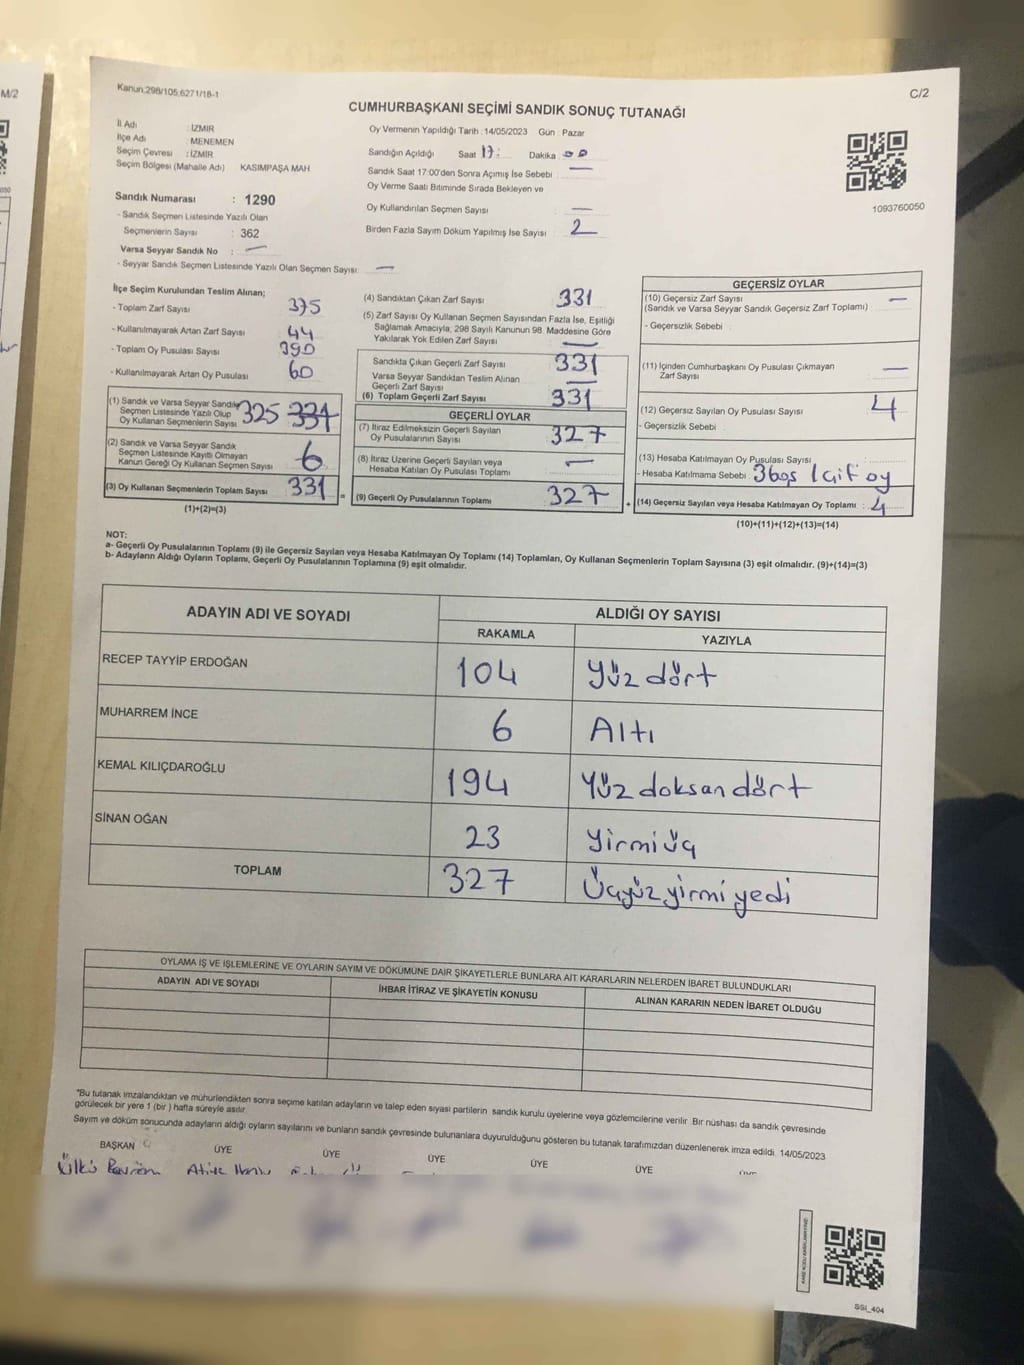 M/2
Kanun:298/105;6271/18-1
C/2
CUMHURBAŞKANI SEÇİMİ SANDIK SONUÇ TUTANAĞI
İl Adı : İZMİR
İlçe Adı : MENEMEN
Seçim Çevresi : İZMİR
Seçim Bölgesi (Mahalle Adı) KASIMPAŞA MAH
Sandık Numarası : 1290
- Sandık Seçmen Listesinde Yazılı Olan
Seçmenlerin Sayısı : 362
Varsa Seyyar Sandık No : —
- Seyyar Sandık Seçmen Listesinde Yazılı Olan Seçmen Sayısı: —
Oy Vermenin Yapıldığı Tarih :14/05/2023 Gün : Pazar
Sandığın Açıldığı Saat 17: Dakika 00
Sandık Saat 17:00'den Sonra Açımış İse Sebebi : —
Oy Verme Saati Bitiminde Sırada Bekleyen ve
Oy Kullandırılan Seçmen Sayısı : —
Birden Fazla Sayım Döküm Yapılmış İse Sayısı : 2
1093760050
İlçe Seçim Kurulundan Teslim Alınan;
- Toplam Zarf Sayısı : 375
- Kullanılmayarak Artan Zarf Sayısı : 44
- Toplam Oy Pusulası Sayısı : 390
- Kullanılmayarak Artan Oy Pusulası : 60
(1) Sandık ve Varsa Seyyar Sandık
Seçmen Listesinde Yazılı Olup
Oy Kullanan Seçmenlerin Sayısı : 325 331
(2) Sandık ve Varsa Seyyar Sandık
Seçmen Listesinde Kayıtlı Olmayan
Kanun Gereği Oy Kullanan Seçmen Sayısı : 6
(3) Oy Kullanan Seçmenlerin Toplam Sayısı : 331
(1)+(2)=(3)
(4) Sandıktan Çıkan Zarf Sayısı : 331
(5) Zarf Sayısı Oy Kullanan Seçmen Sayısından Fazla İse, Eşitliği
Sağlamak Amacıyla, 298 Sayılı Kanunun 98. Maddesine Göre
Yakılarak Yok Edilen Zarf Sayısı : —
Sandıkta Çıkan Geçerli Zarf Sayısı : 331
Varsa Seyyar Sandıktan Teslim Alınan
Geçerli Zarf Sayısı : —
(6) Toplam Geçerli Zarf Sayısı : 331
GEÇERLİ OYLAR
(7) İtiraz Edilmeksizin Geçerli Sayılan
Oy Pusulalarının Sayısı : 327
(8) İtiraz Üzerine Geçerli Sayılan veya
Hesaba Katılan Oy Pusulası Toplamı : —
= (9) Geçerli Oy Pusulalarının Toplamı : 327
GEÇERSİZ OYLAR
(10) Geçersiz Zarf Sayısı : —
(Sandık ve Varsa Seyyar Sandık Geçersiz Zarf Toplamı)
- Geçersizlik Sebebi :
(11) İçinden Cumhurbaşkanı Oy Pusulası Çıkmayan
Zarf Sayısı : —
(12) Geçersiz Sayılan Oy Pusulası Sayısı : 4
- Geçersizlik Sebebi :
(13) Hesaba Katılmayan Oy Pusulası Sayısı :
- Hesaba Katılmama Sebebi : 3 boş 1 çift oy
+ (14) Geçersiz Sayılan veya Hesaba Katılmayan Oy Toplamı : 4
(10)+(11)+(12)+(13)=(14)
NOT:
a- Geçerli Oy Pusulalarının Toplamı (9) ile Geçersiz Sayılan veya Hesaba Katılmayan Oy Toplamı (14) Toplamları, Oy Kullanan Seçmenlerin Toplam Sayısına (3) eşit olmalıdır. (9)+(14)=(3)
b- Adayların Aldığı Oyların Toplamı, Geçerli Oy Pusulalarının Toplamına (9) eşit olmalıdır.
ADAYIN ADI VE SOYADI ALDIĞI OY SAYISI
RAKAMLA YAZIYLA
RECEP TAYYİP ERDOĞAN 104 Yüz dört
MUHARREM İNCE 6 Altı
KEMAL KILIÇDAROĞLU 194 Yüz doksan dört
SİNAN OĞAN 23 Yirmi üç
TOPLAM 327 Üçyüz yirmi yedi
OYLAMA İŞ VE İŞLEMLERİNE VE OYLARIN SAYIM VE DÖKÜMÜNE DAİR ŞİKAYETLERLE BUNLARA AİT KARARLARIN NELERDEN İBARET BULUNDUKLARI
ADAYIN ADI VE SOYADI İHBAR İTİRAZ VE ŞİKAYETİN KONUSU ALINAN KARARIN NEDEN İBARET OLDUĞU
*Bu tutanak imzalandıktan ve mühürlendikten sonra seçime katılan adayların ve talep eden siyasi partilerin sandık kurulu üyelerine veya gözlemcilerine verilir. Bir nüshası da sandık çevresinde
görülecek bir yere 1 (bir ) hafta süreyle asılır.
Sayım ve döküm sonucunda adayların aldığı oyların sayılarını ve bunların sandık çevresinde bulunanlara duyurulduğunu gösteren bu tutanak tarafımızdan düzenlenerek imza edildi. 14/05/2023
BAŞKAN ÜYE ÜYE ÜYE ÜYE ÜYE
Ülkü
SSI_404